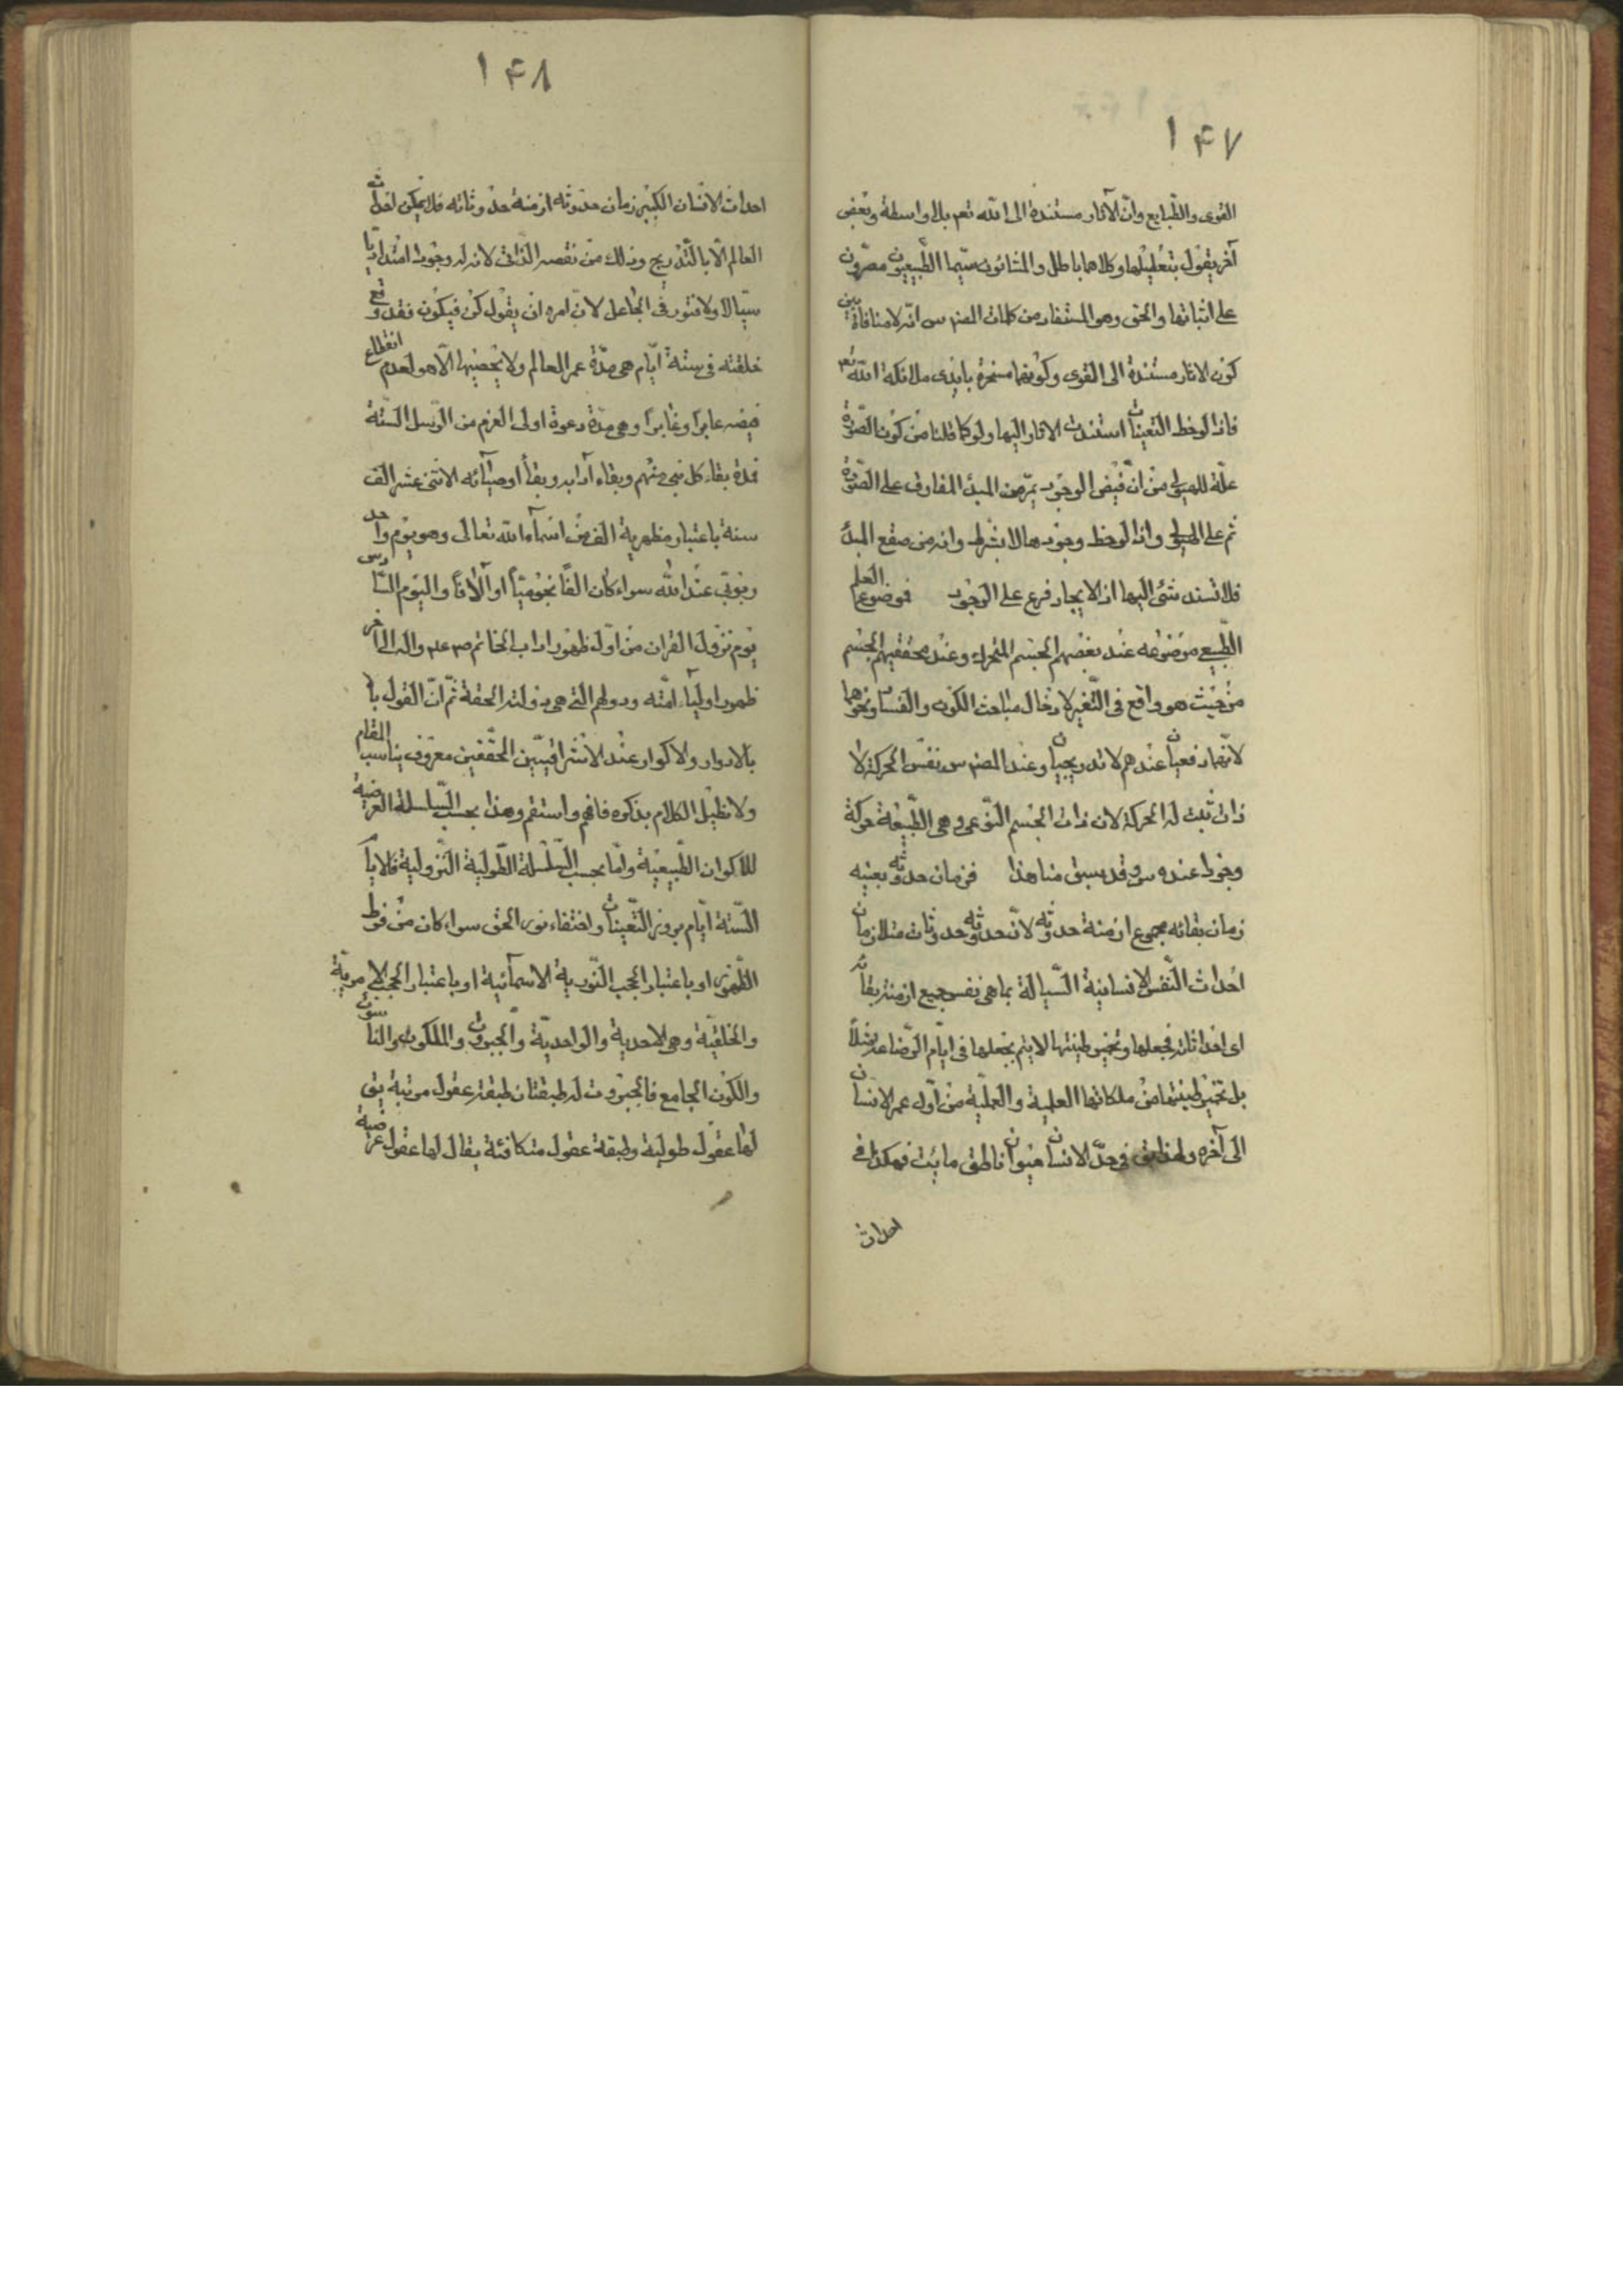 ١٤٧
القوى والطّبايع وانّ الآثار مستندة الى اللّه تعم بلا واسطة وبعض
آخر يقول بتعليلها وكلاهما باطل والمشائون سيّما الطّبيعيون مصرّون
على اثباتها والحق وهو المستفاد من كلمات المصنف س انّه لا منافاة بين
كون الاثار مستندة الى القوى وكونها مسخرة بايدى ملائكة اللّه تعم
فاذا لوحظ التعينات استندت الاثار اليها ولو كما قلنا من كون الصّورة
علّة للهيولى من انّ فيض الوجود يمرّ من المبدء المفارق على الصّورة
ثم على الهيولى واذا لوحظ وجودها لا بشرط وانه من صقع المبدء
فلا تسند شئ اليها اذ الايجاد فرع على الوجود فموضوع العلم
الطّبيعى موضوعه عند بعضهم الجسم المتحرك وعند محققيهم الجسم
من حيث هو واقع فى التّغير لادخال مباحث الكون والفساد ونحوها
لانّهما دفعيان عندهم لا تدريجيان وعند المصنف س نفس الحركة لا
ذات ثبت له الحركة لان ذات الجسم النّوعى وهى الطّبيعة حركة
وجودا عنده س وقد سبق منا هذا فزمان حدوثه بعينه
زمان بقائه مجموع ازمنة حدوثه لانّ حدوثه حدوثات مثلا زمان
احداث النّفس الانسانية السّيالة بما هى نفس جميع ازمنة بقائه
اى احداثاته فجعلها وتخمير طينتها لا يتم بجعلها فى ايّام الرّضاعة مثلاً
بل تخمير طينتها من ملكاتها العلمية والعمليّة من اوّل عمر الانسان
الى آخره ولهذا يق فى حدّ الانسان حيوان ناطق مائت فهكذا فى
احداث
١٤٨
احداث الانسان الكبير زمان حدوثه ازمنة حدوثاته فلا يمكن احداث
العالم الّا بالتّدريج وذلك من نقصه الذاتى لانه له وجودا امتداديّا
سيّالا ولا فتور فى الجاعل لانّ امره ان يقول كن فيكون فقد وقع
خلقته فى ستة ايّام هى مدّة عمر العالم ولا يحصيها الّا هو لعدم انقطاع
فيضه عابرا وغابرا وهى مدّة دعوة اولى العزم من الرّسل السّتة
فمدة بقاء كل نبى منهم وبقاء آدابه وبقاء اوصيائه الاثنى عشر الف
سنة باعتبار مظهرية الف من اسماء اللّه تعالى وهو يوم واحد
ربوبى عند اللّه سواء كان الفًا نجوميّاً او آلافاً واليوم السّادس
يوم نزول القران من اوّل ظهور اداب الخاتم ص ع م واله الى آخر
ظهور اولياء امّته ودولهم التى هى دولته الحقة ثمّ انّ القول
بالادوار والاكوار عند الاشراقييّن المحقّقين معروف يناسب المقام
ولا نطيل الكلام بذكره فافهم واستقم وهذا بحسب السّلسلة العرضية
للاكوان الطّبيعيّة وامّا بحسب السّلسلة الطّولية النّزولية فالايام
السّتة ايّام بروز التّعينات واختفاء نور الحق سواء كان من فرط
الظّهور او باعتبار الحجب النّورية الاسمائية او باعتبار الحجب الامريّة
والخلقيّة وهى الاحدية والواحديّة والجبروت والملكوت والناسوت
والكون الجامع فالجبروت له طبقتان طبقة عقول مرتبة يق
لها عقول طولية وطبقة عقول متكافئة يقال لها عقول عرضية